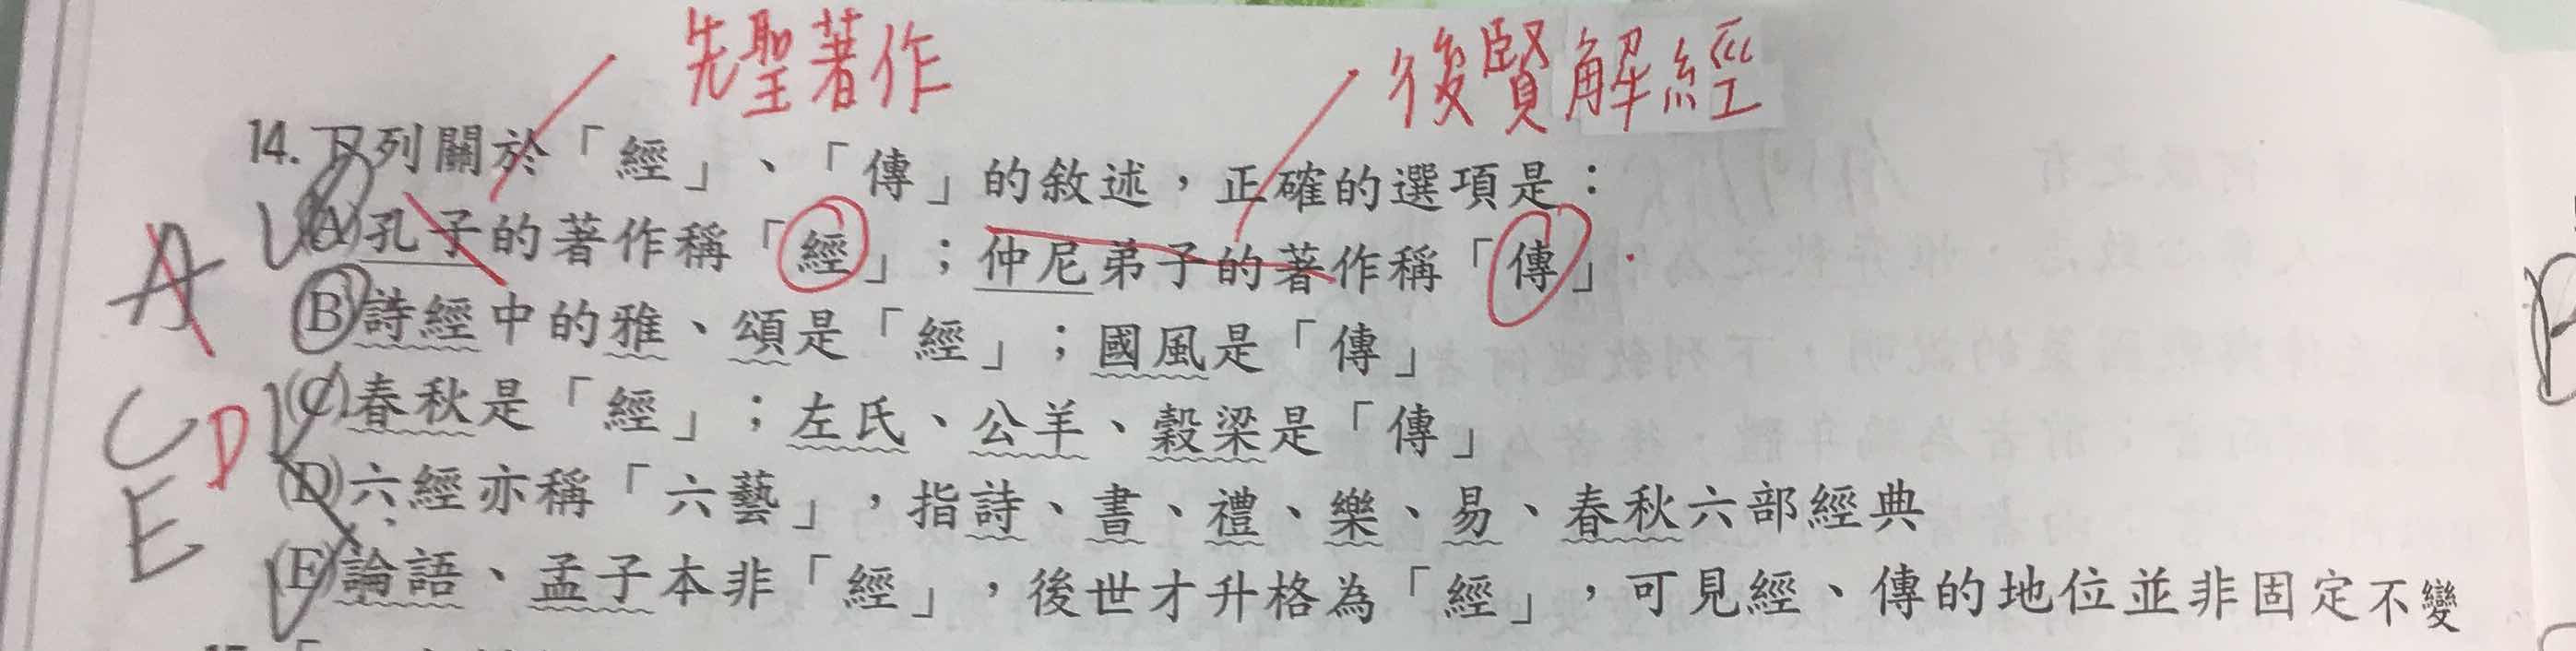 先聖著作
後賢解經
14.下列關於「經」、「傳」的敘述，正確的選項是：
(A)孔子的著作稱「經」；仲尼弟子的著作稱「傳」
(B)詩經中的雅、頌是「經」；國風是「傳」
(C)春秋是「經」；左氏、公羊、穀梁是「傳」
(D)六經亦稱「六藝」，指詩、書、禮、樂、易、春秋六部經典
(E)論語、孟子本非「經」，後世才升格為「經」，可見經、傳的地位並非固定不變
A
C D
E